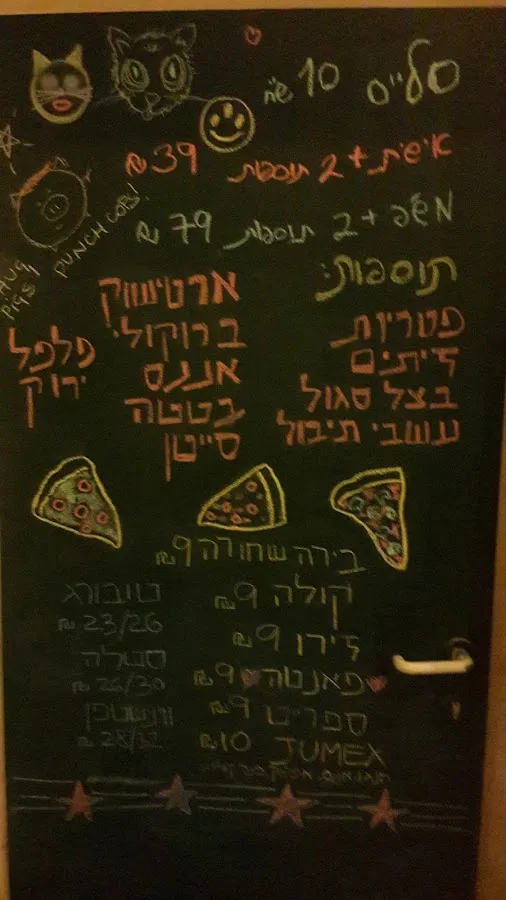 סלייס 10 ש"ח
אישית + 2 תוספות 39 ₪
משפ' + 2 תוספות 79 ₪
HUG PIGS,
PUNCH COPS!
תוספות:
פטריות
זיתים
בצל סגול
עשבי תיבול
ארטישוק
ברוקולי
אננס
בטטה
סייטן
פלפל
ירוק
בירה שחורה 9 ₪
קולה 9 ₪
זירו 9 ₪
פאנטה 9 ₪
ספרייט 9 ₪
JUMEX 10 ₪
טובורג
23/26 ₪
סטלה
26/30 ₪
וינשטפן
28/32 ₪